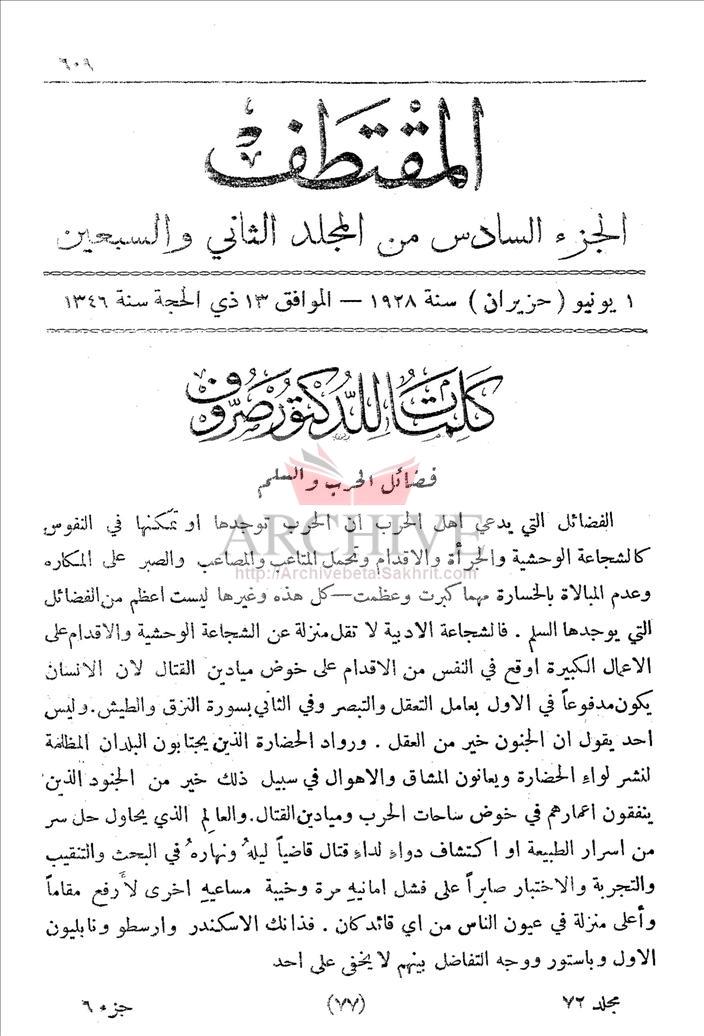 ٦٠٩
المقتطف
الجزء السادس من المجلد الثاني والسبعين
١ يونيو ( حزيران ) سنة ١٩٢٨ — الموافق ١٣ ذي الحجة سنة ١٣٤٦
كلمات للدكتور صروف
فضائل الحرب والسلم
الفضائل التي يدعي اهل الحرب ان الحرب توجدها او تمكنها في النفوس
كالشجاعة الوحشية والجرأة والاقدام وتحمل المتاعب والمصاعب والصبر على المكاره
وعدم المبالاة بالخسارة مهما كبرت وعظمت — كل هذه وغيرها ليست اعظم من الفضائل
التي يوجدها السلم . فالشجاعة الادبية لا تقل منزلة عن الشجاعة الوحشية والاقدام على
الاعمال الكبيرة اوقع في النفس من الاقدام على خوض ميادين القتال لان الانسان
يكون مدفوعاً في الاول بعامل التعقل والتبصر وفي الثاني بسورة النزق والطيش . وليس
احد يقول ان الجنون خير من العقل . ورواد الحضارة الذين يجتابون البلدان المظلمة
لنشر لواءِ الحضارة ويعانون المشاق والاهوال في سبيل ذلك خير من الجنود الذين
ينفقون اعمارهم في خوض ساحات الحرب وميادين القتال . والعالِم الذي يحاول حل سر
من اسرار الطبيعة او اكتشاف دواءٍ لداءٍ قتال قاضياً ليلهُ ونهارهُ في البحث والتنقيب
والتجربة والاختبار صابراً على فشل امانيهِ مرة وخيبة مساعيهِ اخرى لأَرفع مقاماً
وأعلى منزلة في عيون الناس من اي قائد كان . فذانك الاسكندر وارسطو ونابليون
الاول وباستور ووجه التفاضل بينهم لا يخفى على احد
مجلد ٧٢ (٧٧) جزء ٦
ARCHIVE
http://Archivebeta.Sakhrit.com